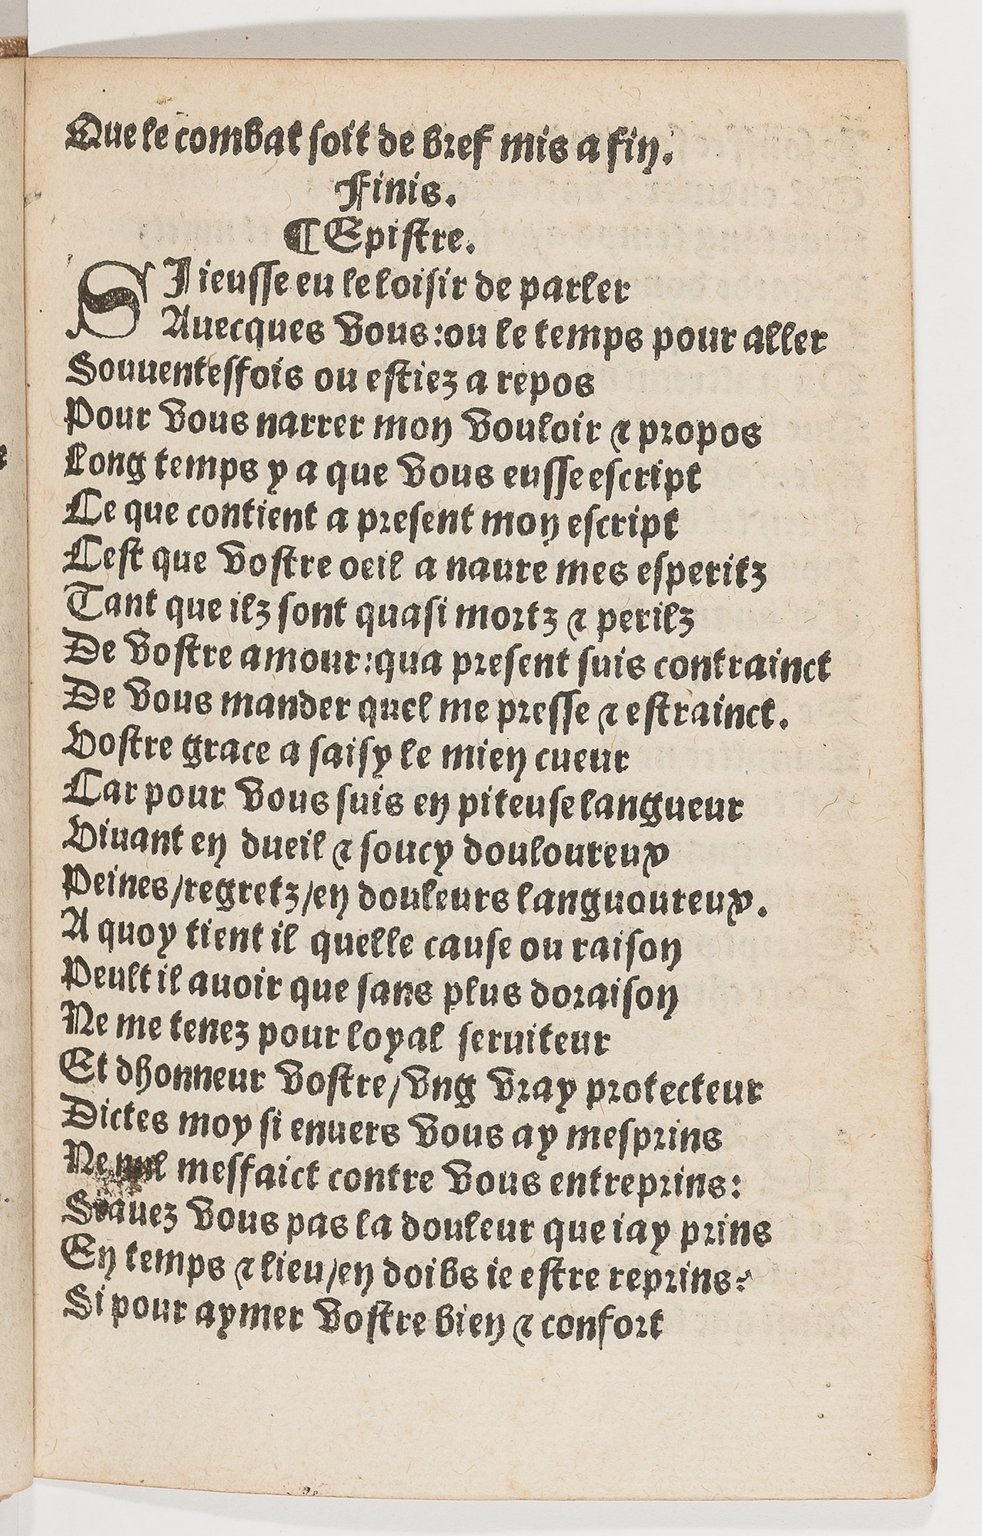 Que le combat soit de bref mis a fin.
Finis.
¶ Epistre.
SI ieusse eu le loisir de parler
Auecques vous: ou le temps pour aller
Souuentesfois ou estiez a repos
Pour vous narrer mon vouloir & propos
Long temps y a que vous eusse escript
Ce que contient a present mon escript
Cest que vostre oeil a naure mes esperitz
Tant que ilz sont quasi mortz & perilz
De vostre amour: qua present suis contrainct
De vous mander quel me presse & estrainct.
Vostre grace a saisy le mien cueur
Car pour vous suis en piteuse langueur
Viuant en dueil & soucy douloureux
Peines/regretz/en douleurs languoureux.
A quoy tient il quelle cause ou raison
Peult il auoir que sans plus doraison
Ne me tenez pour loyal seruiteur
Et dhonneur vostre/vng vray protecteur
Dictes moy si enuers vous ay mesprins
Ne nul messaict contre vous entreprins:
Scauez vous pas la douleur que iay prins
En temps & lieu/en doibs ie estre reprins?
Si pour aymer vostre bien & confort